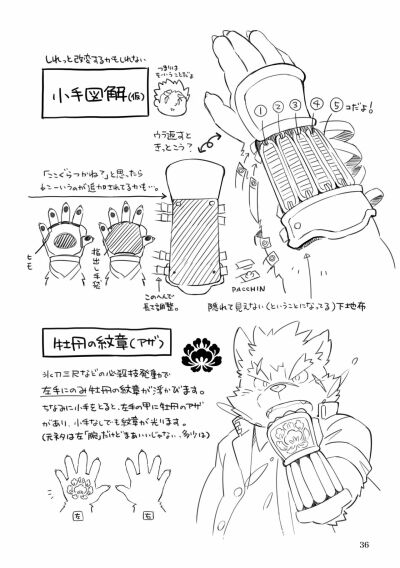 しれっと改変するかもしれない
小手図解(仮)
つまりは
そーいうことだよ
ウラ返すと
きっとこう?
① ② ③ ④ ⑤ コだよ!
「ここぐらつかね?」と思ったら
こーいうのが追加されてるかも…。
ヒモ
指出し手袋
このへんで
長さ調整。
PACCHIN
隠れて見えない(ということになってる)下地布
牡丹の紋章(アザ)
氷刀三尺などの必殺技発動で
左手にのみ牡丹の紋章が浮かびます。
ちなみに小手をとると、左手の甲に牡丹のアザ
があり、小手なしでも紋章が光ります。
(元ネタは左「腕」だけどまあいいじゃない、多少は)
左
右
36